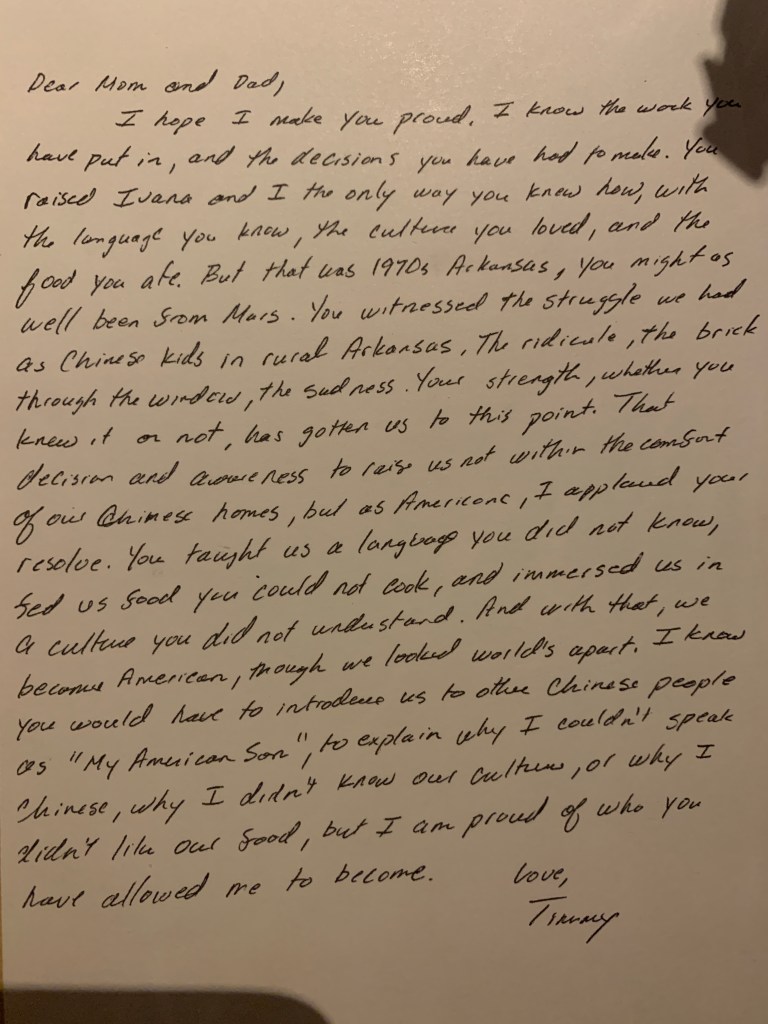 Dear Mom and Dad,
I hope I make you proud. I know the work you
have put in, and the decisions you have had to make. You
raised Ivana and I the only way you knew how, with
the language you know, the culture you loved, and the
food you ate. But that was 1970s Arkansas, you might as
well been from Mars. You witnessed the struggle we had
as Chinese kids in rural Arkansas. The ridicule, the brick
through the window, the sadness. Your strength, whether you
knew it or not, has gotten us to this point. That
decision and awareness to raise us not within the comfort
of our Chinese homes, but as Americans, I applaud your
resolve. You taught us a language you did not know,
fed us food you could not cook, and immersed us in
a culture you did not understand. And with that, we
became American, though we looked world's apart. I know
you would have to introduce us to other Chinese people
as "My American Son", to explain why I couldn't speak
Chinese, why I didn't know our culture, or why I
didn't like our food, but I am proud of who you
have allowed me to become.
Love,
Timmy